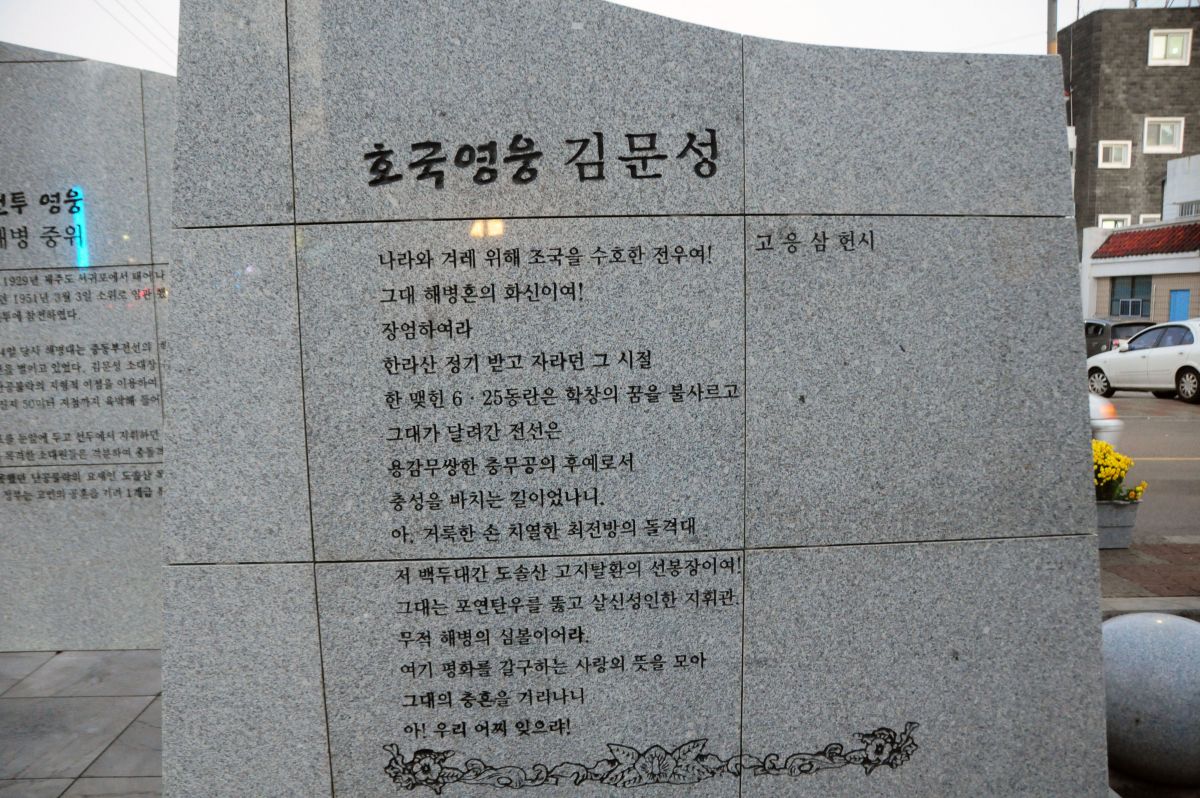 호국영웅 김문성
고응삼 헌시
나라와 겨레 위해 조국을 수호한 전우여!
그대 해병혼의 화신이여!
장엄하여라
한라산 정기 받고 자라던 그 시절
한 맺힌 6·25동란은 학창의 꿈을 불사르고
그대가 달려간 전선은
용감무쌍한 충무공의 후예로서
충성을 바치는 길이었나니.
아, 거룩한 손 치열한 최전방의 돌격대
저 백두대간 도솔산 고지탈환의 선봉장이여!
그대는 포연탄우를 뚫고 살신성인한 지휘관.
무적 해병의 심볼이어라.
여기 평화를 갈구하는 사랑의 뜻을 모아
그대의 충혼을 기리나니
아! 우리 어찌 잊으랴!
전투 영웅
해병 중위
1929년 제주도 서귀포에서 태어나
1951년 3월 3일 소위로 임관
참전하였다.
당시 해병대는 중동부전선의
벌이고 있었다. 김문성 소대장
난공불락의 지형적 이점을 이용하여
50미터 지점까지 육박해 들어
눈앞에 두고 선두에서 지휘하던
목격한 소대원들은 격분하여
난공불락의 요새인 도솔산
정부는 고인의 공훈을 기려 1계급